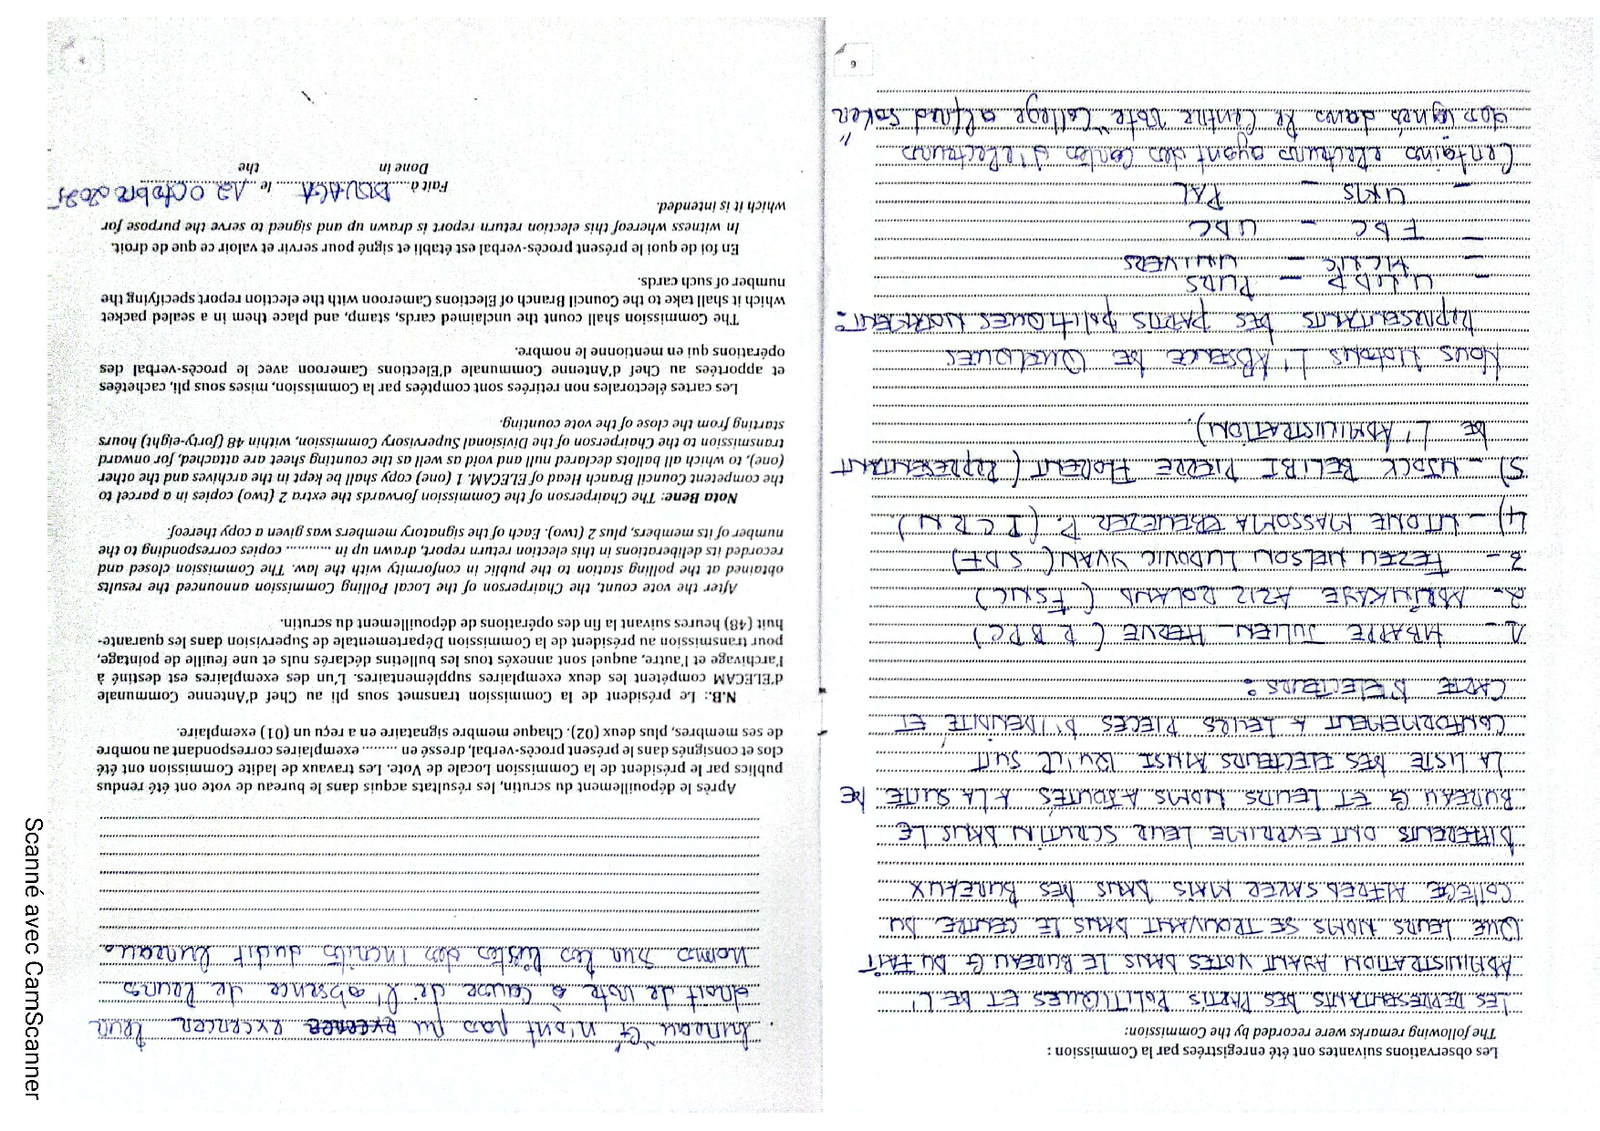 Les observations suivantes ont été enregistrées par la Commission :
The following remarks were recorded by the Commission:
LES REPRESENTANTS DES PARTIS POLITIQUES ET DE L'
ADMINISTRATION AYANT VOTES DANS LE BUREAU G DU FAIT
QUE LEURS NOMS SE TROUVANT DANS LE CENTRE DU
COLLEGE ALFRED SAKER MAIS DANS DES BUREAUX
DIFFERENTS ONT EXPRIME LEUR SCRUTIN DANS LE
BUREAU G ET LEURS NOMS AJOUTÉS A LA SUITE DE
LA LISTE DES ELECTEURS AINSI QU'IL SUIT
CONFORMEMENT A LEURS PIECES D'IDENDITE ET
CARTE D'ELECTEURS :
1 - MBAPPE JULIEN HERVE (RDPC)
2 - AZIZ ROLAND (FSNC)
3 - FEZEU NELSON LUDOVIC YVAN (SDF)
4) - NTONE MASSOMA EBENEZER P. (PCRN)
5) - NJOCK BELIBI PIERRE FLORENT (REPRESENTANT
DE L'ADMINISTRATION).
NOUS NOTONS L'ABSENCE DE QUELQUES
REPRESENTANTS DES PARTIS POLITIQUES NOTAMMENT :
- UNDP - PURS
- MCNC - UNIVERS
- FDC - UDC
- UMS - PAL
Certains electeurs ayant des cartes d'electeurs
designés dans le centre vote "College alfred saker"
9
bureau "G" n'ont pas pu exercer leur
droit de vote à cause de l'absence de leurs
noms sur les listes des inscrits dudit bureau.
Après le dépouillement du scrutin, les résultats acquis dans le bureau de vote ont été rendus
publics par le président de la Commission Locale de Vote. Les travaux de ladite Commission ont été
clos et consignés dans le présent procès-verbal, dressé en ......... exemplaires correspondant au nombre
de ses membres, plus deux (02). Chaque membre signataire en a reçu un (01) exemplaire.
N.B.: Le président de la Commission transmet sous pli au Chef d'Antenne Communale
d'ELECAM compétent les deux exemplaires supplémentaires. L'un des exemplaires est destiné à
l'archivage et l'autre, auquel sont annexés tous les bulletins déclarés nuls et une feuille de pointage,
pour transmission au président de la Commission Départementale de Supervision dans les quarante-
huit (48) heures suivant la fin des opérations de dépouillement du scrutin.
After the vote count, the Chairperson of the Local Polling Commission announced the results
obtained at the polling station to the public in conformity with the law. The Commission closed and
recorded its deliberations in this election return report, drawn up in ............ copies corresponding to the
number of its members, plus 2 (two). Each of the signatory members was given a copy thereof.
Nota Bene: The Chairperson of the Commission forwards the extra 2 (two) copies in a parcel to
the competent Council Branch Head of ELECAM. 1 (one) copy shall be kept in the archives and the other
(one), to which all ballots declared null and void as well as the counting sheet are attached, for onward
transmission to the Chairperson of the Divisional Supervisory Commission, within 48 (forty-eight) hours
starting from the close of the vote counting.
Les cartes électorales non retirées sont comptées par la Commission, mises sous pli, cachetées
et apportées au Chef d'Antenne Communale d'Elections Cameroon avec le procès-verbal des
opérations qui en mentionne le nombre.
The Commission shall count the unclaimed cards, stamp, and place them in a sealed packet
which it shall take to the Council Branch of Elections Cameroon with the election report specifying the
number of such cards.
En foi de quoi le présent procès-verbal est établi et signé pour servir et valoir ce que de droit.
In witness whereof this election return report is drawn up and signed to serve the purpose for
which it is intended.
Fait à DOUALA le 12 octobre 2025
Done in the
Scanné avec CamScanner